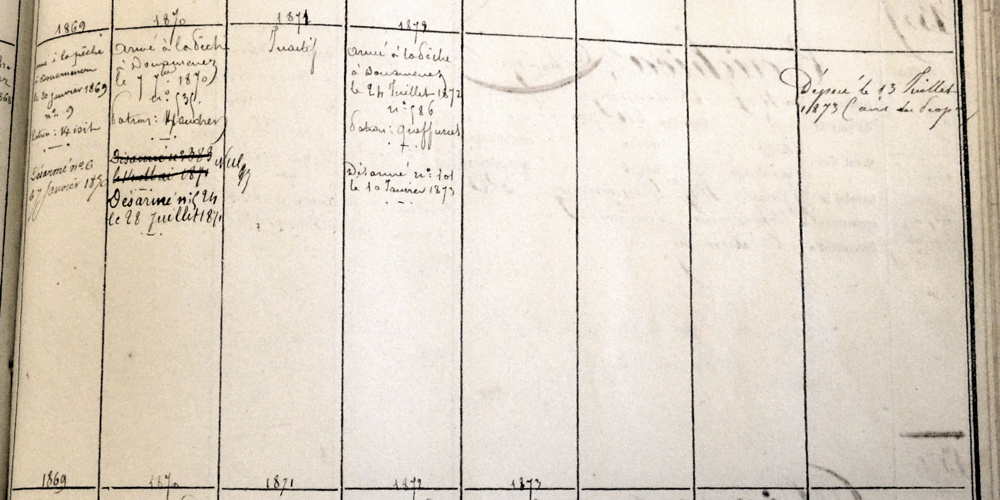 1869
à la pêche
à Douarnenez
le 20 janvier 1869
n° 9
Désarmé n° 6
le 7 Janvier 1870
1870
armé à la Pêche
à Douarnenez
le 7 7bre 1870
n° 531.
Patron:
Désarmé n° 383
le 14 Mai 1871
Nul
Désarmé n° 524
le 28 Juillet 1871
1871
Inactif
1872
armé à la Pêche
à Douarnenez
le 24 Juillet 1872
n° 586
Patron: Quéffurus
Désarmé n° 101
le 10 Janvier 1873
Dépecé le 13 Juillet
1873 (avis du
1869
1870
1871
1872
1873